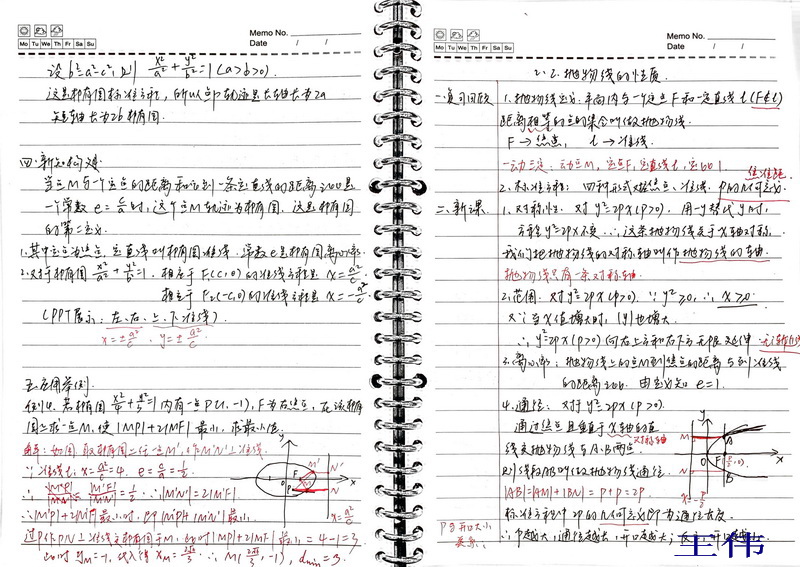 Memo No.
Mo Tu We Th Fr Sa Su
Date / /
设 b²=a²-c², 则 x²/a² + y²/b² = 1 (a>b>0).
这是椭圆标准方程, 所以点P轨迹是长轴长为2a
短轴长为2b椭圆.
四. 新知构建
当点M与一个定点的距离和它到一条定直线的距离之比是
一个常数 e = c/a 时, 这个点M轨迹为椭圆. 这是椭圆
的第二定义.
1. 其中定点为焦点, 定直线叫椭圆准线. 常数e是椭圆离心率.
2. 对于椭圆 x²/a² + y²/b² = 1, 相应于F₁(c,0)的准线方程是 x = a²/c
相应于F₂(-c,0)的准线方程是 x = -a²/c
(PPT展示: 左、右、上、下准线)
x = ± a²/c y = ± a²/c
五. 应用举例.
例4. 若椭圆 x²/4 + y²/3 = 1 内有一点P(1,-1), F为右焦点, 在该椭圆
图上求一点M, 使 |MP|+2|MF| 最小, 求最小值.
解: 如图 取椭圆上任一点M', 作M'N'⊥准线
∵准线l: x = a²/c = 4. e = c/a = 1/2.
∴ |M'F|/|M'N'| = 1/2 ∴ |M'N'| = 2|M'F|
∴ |M'P|+2|M'F| 最小时, 即 |M'P|+|M'N'| 最小
过P作PN⊥准线交椭圆于M, 此时 |MP|+2|MF| 最小 = 4-1 = 3
此时 yM = -1, 代入得 xM = 2√6/3 ∴ M(2√6/3, -1), dmin = 3.
y
M' N'
F
P M N
x
x = a²/c
Memo No.
Mo Tu We Th Fr Sa Su
Date / /
2.2. 抛物线的性质.
一. 复习回顾 1. 抛物线定义: 平面内与一个定点F和一定直线l (F∉l)
距离相等的点的集合叫做抛物线.
F → 焦点, l → 准线.
一动三定: 动点M, 定点F, 定直线l, 定比1.
焦准距
2. 标准方程: 四种形式对应焦点、准线. P的几何意义.
二. 新课 1. 对称性: 对 y²=2px (p>0). 用-y替代y时,
方程y²=2px不变. ∴这条抛物线关于x轴对称.
我们把抛物线的对称轴叫作抛物线的轴.
抛物线只有一条对称轴.
2. 范围. 对y²=2px (p>0). ∵y²≥0, ∴x≥0.
又∵当x值增大时, |y|也增大.
∴y²=2px (p>0) 向右上方和右下方无限延伸.
3. 离心率: 抛物线上的点M到焦点的距离与到准线
的距离之比. 由定义知 e=1.
4. 通径: 对于 y²=2px (p>0).
通过焦点且垂直于x轴的直
对称轴
线交抛物线于A·B两点.
则线段AB叫做抛物线通径.
|AB| = |AM|+|BN| = p+p = 2p.
标准方程中2p的几何意义即为通径长度.
∴p越大, 通径越大, 开口越大;
P与开口大小
y
M A
F(p/2, 0)
x
N B
x = -p/2
王伟